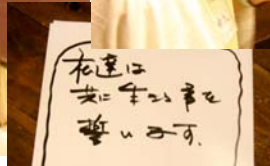 私達は
共に生きる事を
誓います。